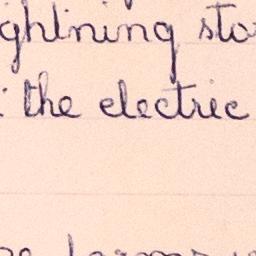 ghtning sto
: the electric